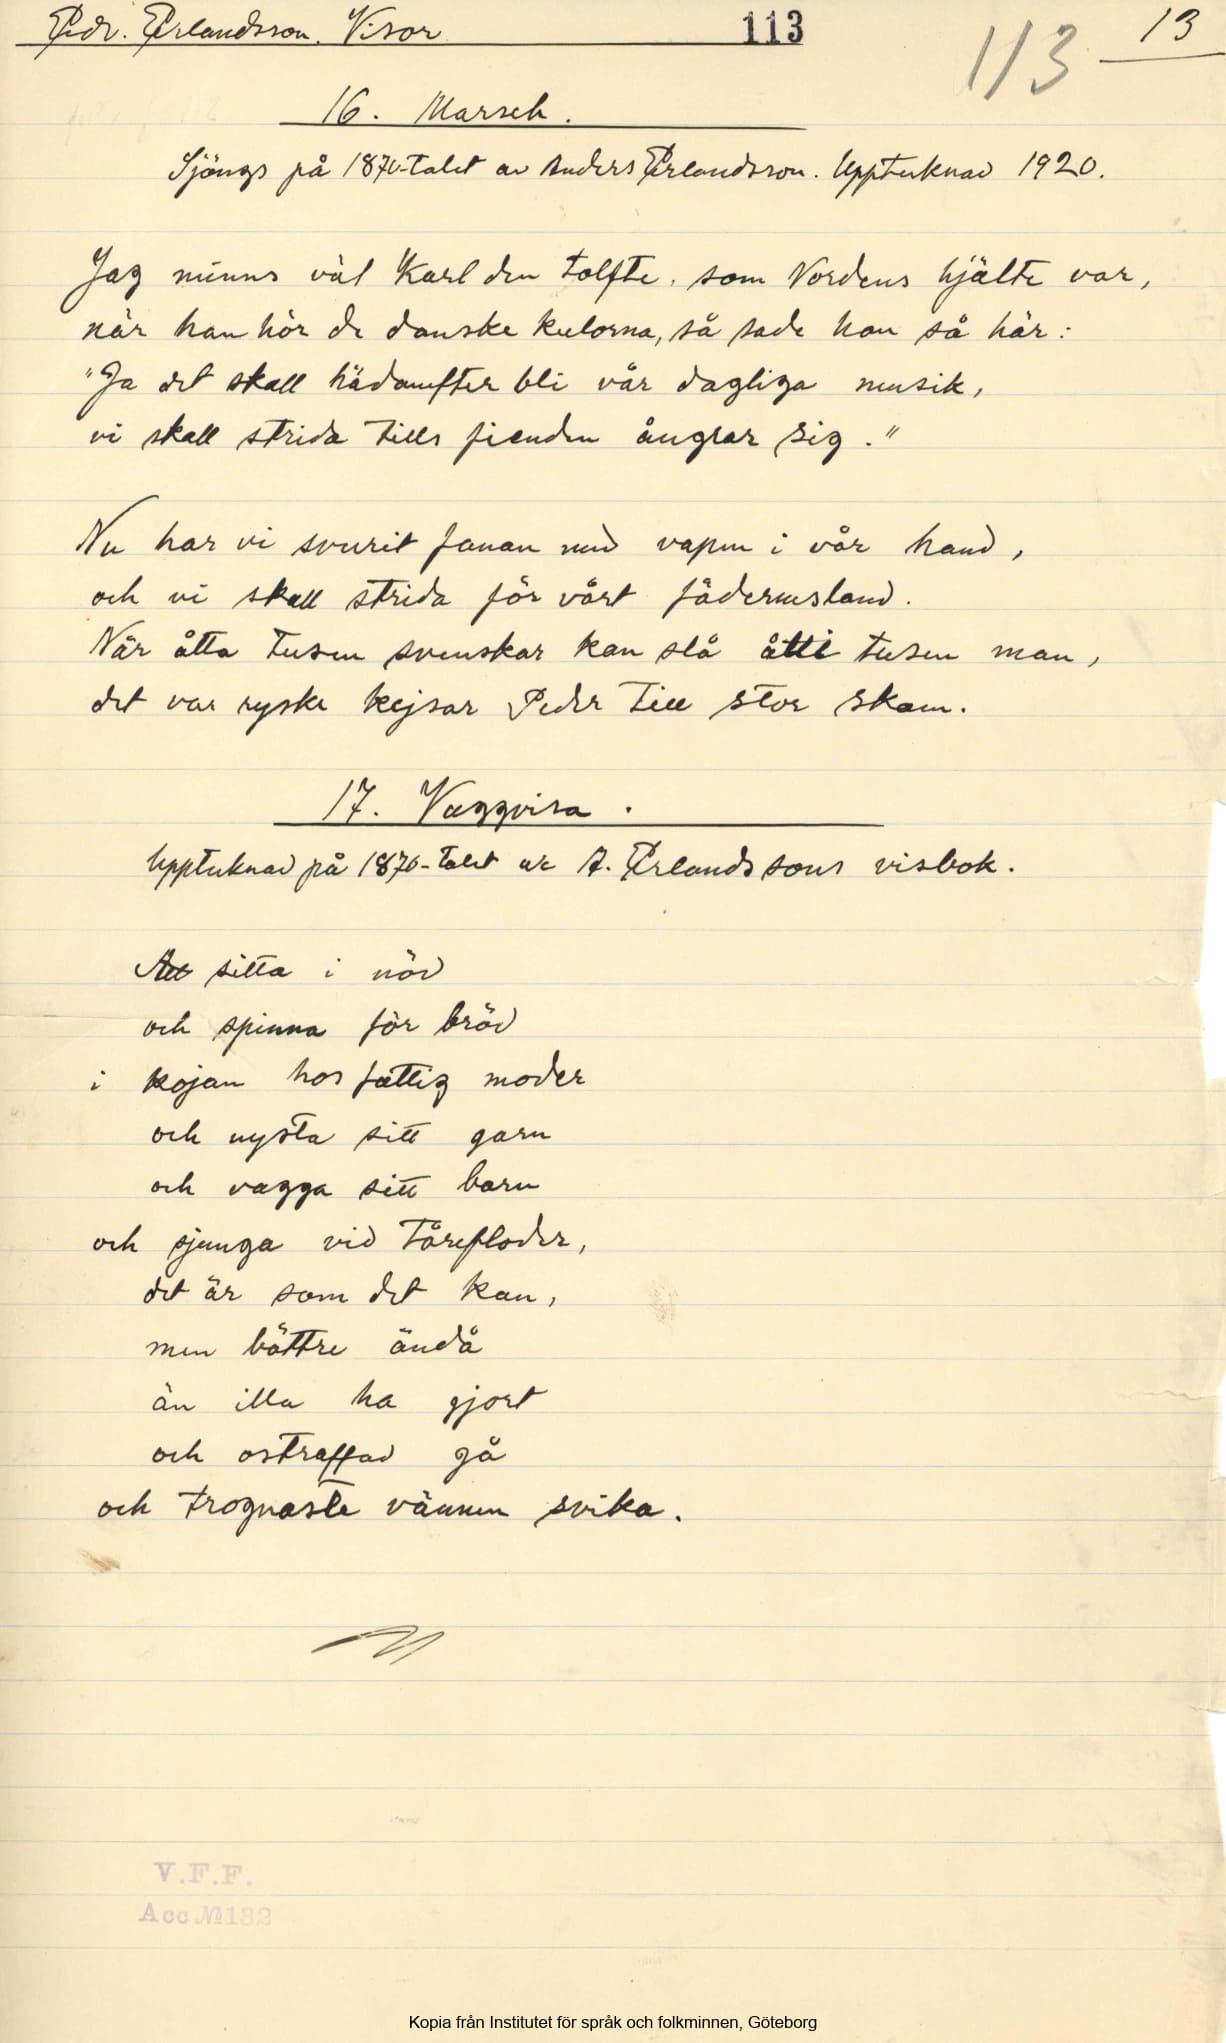 Edv. Erlandsson. Visor 113 113 13
16. Marsch.
Sjöngs på 1870-talet av Anders Erlandsson. Upptecknad 1920.
Jag minns väl Karl den tolfte, som Nordens hjälte var,
när han hör de danska kulorna, så sade han så här:
"Ja det skall hädanefter bli vår dagliga musik,
vi skall strida tills fienden ångrar sig."
Nu har vi svurit fanan med vapen i vår hand,
och vi skall strida för vårt fädernesland.
När åtta tusen svenskar kan slå åtti tusen man,
det var ryske kejsar Peder till stor skam.
17. Vaggvisa.
Upptecknad på 1870-talet ur A. Erlandssons visbok.
Att sitta i nöd
och spinna för bröd
i kojan hos fattig moder
och nysta sitt garn
och vagga sitt barn
och sjunga vid tårefloder,
det är som det kan,
men bättre ändå
än illa ha gjort
och ostraffad gå
och trognaste vännen svika.
V.F.F.
Acc № 132
Kopia från Institutet för språk och folkminnen, Göteborg